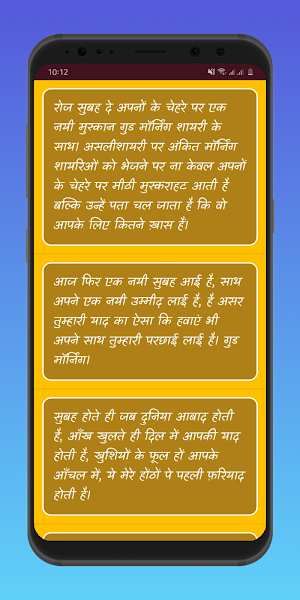 10:12
रोज सुबह दे अपनों के चेहरे पर एक
नयी मुस्कान गुड मॉर्निंग शायरी के
साथ। असलीशायरी पर अंकित मॉर्निंग
शायरिओं को भेजने पर ना केवल अपनों
के चेहरे पर मीठी मुस्कराहट आती है
बल्कि उन्हें पता चल जाता है कि वो
आपके लिए कितने ख़ास है।
आज फिर एक नयी सुबह आई है, साथ
अपने एक नयी उम्मीद लाई है, है असर
तुम्हारी याद का ऐसा कि हवाएं भी
अपने साथ तुम्हारी परछाई लाई है। गुड
मॉर्निंग।
सुबह होते ही जब दुनिया आबाद होती
है, आँख खुलते ही दिल में आपकी याद
होती है, खुशियों के फूल हों आपके
आँचल में, ये मेरे होंठों पे पहली फ़रियाद
होती है।